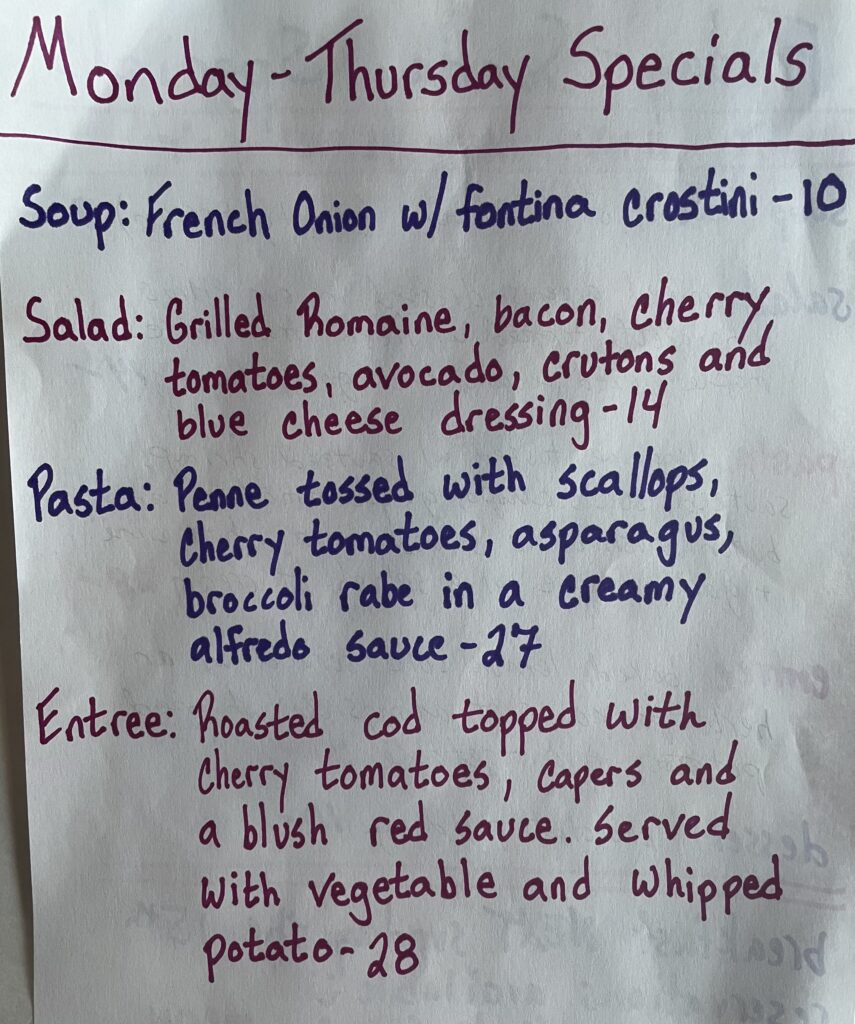 Monday-Thursday Specials
Soup: French Onion w/ fontina crostini - 10
Salad: Grilled Romaine, bacon, cherry
tomatoes, avocado, crutons and
blue cheese dressing - 14
Pasta: Penne tossed with scallops,
Cherry tomatoes, asparagus,
broccoli rabe in a creamy
alfredo sauce - 27
Entree: Roasted cod topped with
Cherry tomatoes, capers and
a blush red sauce. Served
with vegetable and whipped
potato - 28